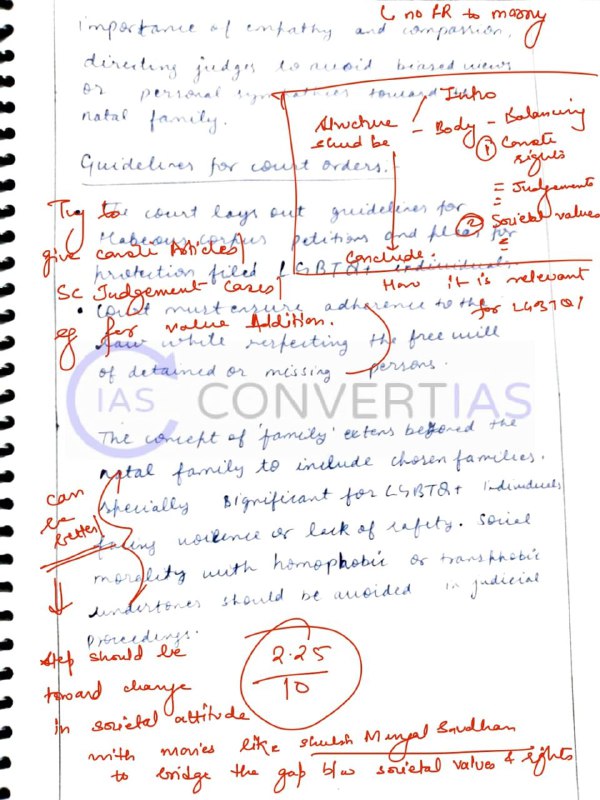 ↳ no FR to marry
importance of empathy and compassion,
directing judges to avoid biased views
or personal sympathies toward
natal family.
Guidelines for court orders.
Intro
Structure should be – Body – Balancing
① Consti rights
= Judgements
② Societal values
=
Conclude.
How it is relevant
for LGBTQ/
Try to
give consti Articles/
SC Judgement Cases/
eg for value Addition.
The court lays out guidelines for
Habeous corpus petitions and pleas for
protection filed LGBTQ+ individuals.
• Court must ensure adherence to the
law while respecting the free will
of detained or missing persons.
IAS CONVERTIAS
The concept of 'family' extens beyond the
natal family to include chosen families.
specially significant for LGBTQ+ individuals
facing voilence or lack of safety. Social
morality with homophobic or transphobic
undertones should be avoided in judicial
proceedings.
can
be
better/
step should be
toward change
in societal attitude
with movies like Shubh Mangal Savdhan
to bridge the gap b/w societal values & rights
2.25
10